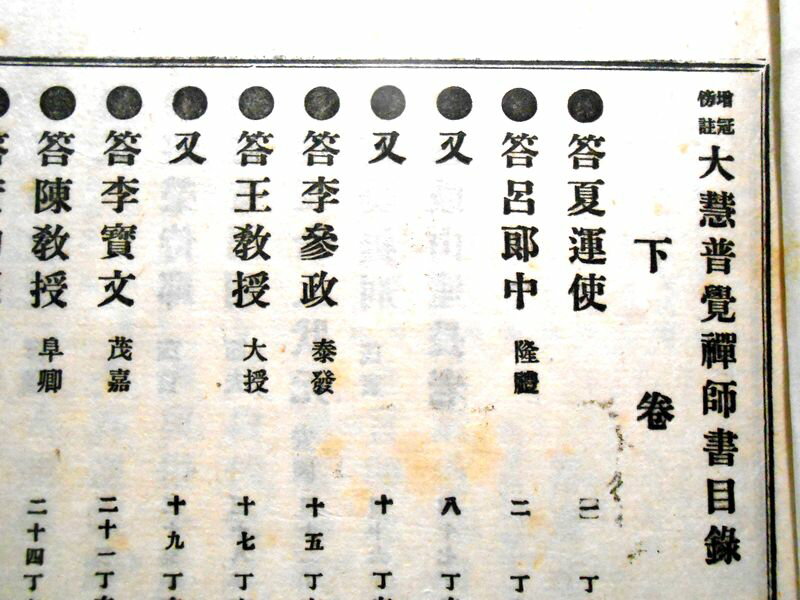 增冠傍註 大慧普覺禪師書目錄
下卷
●答夏運使 二丁
●答呂郎中 隆禮 二丁
●又 八丁
●又 十丁
●答李參政 泰發 十五丁
●答王教授 大授 十七丁
●又 十九丁
●答李寶文 茂嘉 二十一丁
●答陳教授 阜卿 二十四丁